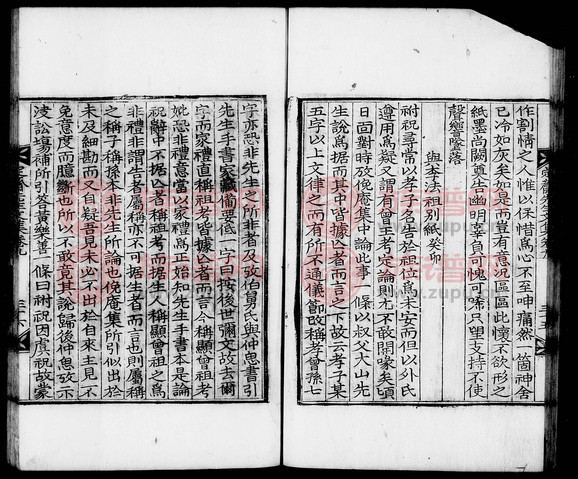 作割情之人惟以保惜爲心不至呻痛然一箇神舍
已冷如灰矣如是而豈有意況區區此懷不欲形之
紙墨尚闕奠告幽明辜負可愧可唏只望支持不使
聲響墜落
與李法祖別紙癸卯
祔祝尋常以孝子名告於祖位爲未安而但以外氏
遵用爲疑又謂有曾王考定行不敢不闕家矣頃
日面對時攷俛庵集中論此事一條以叔父大山先
生說爲据而其中皆據亡者而言之下故云孝子某
五字以上文律之而有所不通儀節改稱孝曾孫七
字亦恐非先生之所非者及攷伯舅氏與仲思書引
先生手書家藏備要低一字曰按後世彌文故去爾
字而家禮直稱祖考皆據亡者而言今稱顯曾祖考
妣恐非禮意當以家禮爲正始知先生手書本是論
祝辭中不据亡者稱祖考而据生人稱顯曾祖之爲
非禮非謂告者屬稱亦不可据生者而言也則屬稱
之稱子稱孫本非先生所論也俛庵集所引似出於
未及細勘而又自疑吾見未必不出於自來主見不
免意度而臆斷也所以不敢竟其說歸後仲思攷下
淩訟塲補所引答黃樂善一條曰祔祝因虞祝故蒙